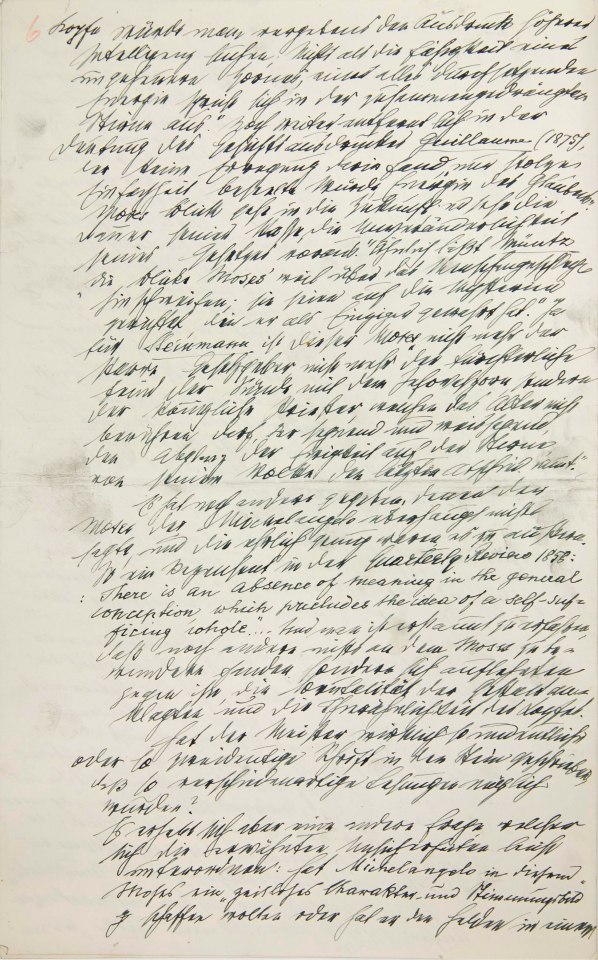 6 Kopfe würde man vergebens den Ausdruck höherer
Intelligenz suchen. Nichts als die Fähigkeit eines
ungeheueren Zornes, einer alles durchsetzenden
Energie spricht sich in der zusammengedrängten
Stirne aus." Noch weiter entfernt sich in der
Deutung des Gesichtsausdruckes Guillaume (1875),
der keine Erregung darin fand, nur stolze
Einfachheit, beseelte Würde, Energie des Glaubens.
Moses Blick gehe in die Zukunft, er sehe die
Dauer seiner Rasse, die Unveränderlichkeit
seines Gesetzes voraus. Ähnlich läßt Müntz
die Blicke Moses weit über das Menschengeschlecht
hinschweifen; sie seien auf die Mysterien
gerichtet, die er als Einziger gewahrt hat." Ja,
für Steinmann ist dieser Moses nicht mehr der
starre Gesetzgeber, nicht mehr der fürchterliche
Feind der Sünde mit dem Jehovazorn, sondern
der königliche Priester, welchen das Alter nicht
berühren darf, der segnend und weissagend,
den Abglanz der Ewigkeit auf der Stirne,
von seinem Volke den letzten Abschied nimmt."
Es hat noch andere gegeben, denen der
Moses des Michelangelo überhaupt nichts
sagte, und die ehrlich genug waren, es zu äußern.
So ein Rezensent in der Quarterly Review 1858:
"There is an absence of meaning in the general
conception, which precludes the idea of a self-suf-
ficing whole"... Und man ist erstaunt zu erfahren,
daß noch andere nichts an dem Moses zu be-
wundern fanden, sondern sich auflehnten
gegen ihn, die Brutalität der Gestalt an-
klagten und die Tierähnlichkeit des Kopfes.
Hat der Meister wirklich so undeutliche
oder so zweideutige Schrift in den Stein geschrieben,
daß so verschiedenartige Lesungen möglich
wurden?
Es erhebt sich aber eine andere Frage, welcher
sich die erwähnten Unsicherheiten leicht
unterordnen: Hat Michelangelo in diesem
Moses ein "zeitloses Charakter- und Stimmungsbild"
schaffen wollen oder hat er den Helden in einem